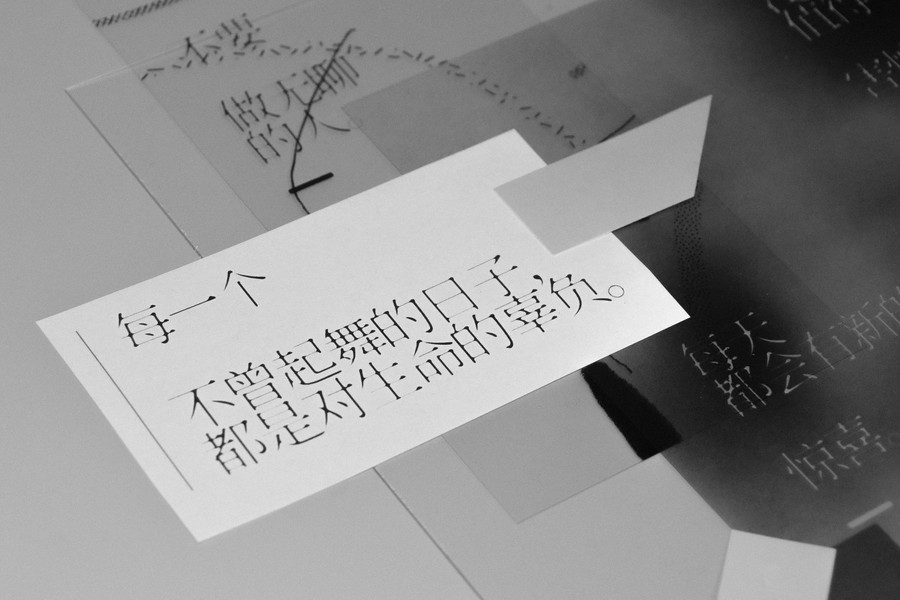 不要
做无聊
的人
每一个
不曾起舞的日子，
都是对生命的辜负。
每天
都会有新的
惊喜。